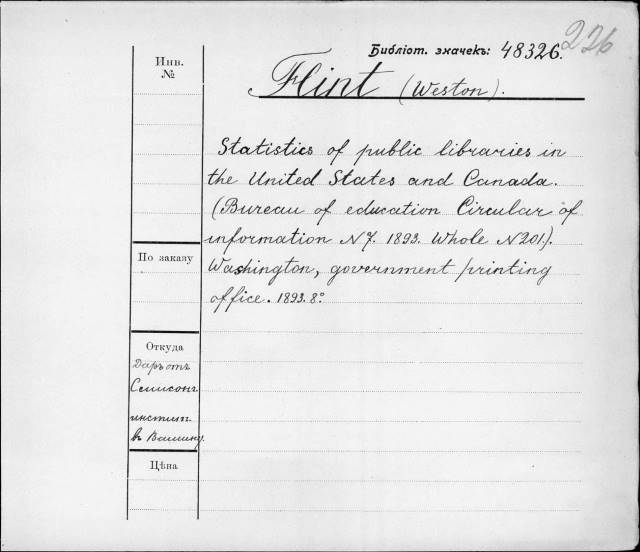 226
Библіот. значекъ: 48326.
Инв.
№
Flint (Weston).
Statistics of public libraries in
the United States and Canada.
(Bureau of education Circular of
information N 7. 1893. Whole N 201.).
Washington, government printing
office. 1893. 8º
По заказу
Откуда
Даръ отъ
Смисон.
инстит.
въ Вашинг.
Цѣна